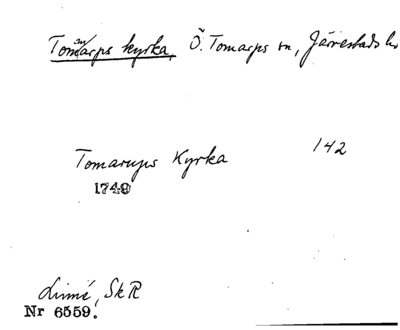 Tomarps kyrka, Ö. Tomarps sn, Järrestads h
Tomarups Kyrka 142
1749
Linné, SkR
Nr 6559.